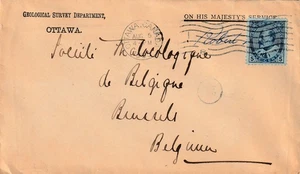 GEOLOGICAL SURVEY DEPARTMENT,
OTTAWA.
ON HIS MAJESTY'S SERVICE.
Société Malacologique
de Belgique
Brussels
Belgium